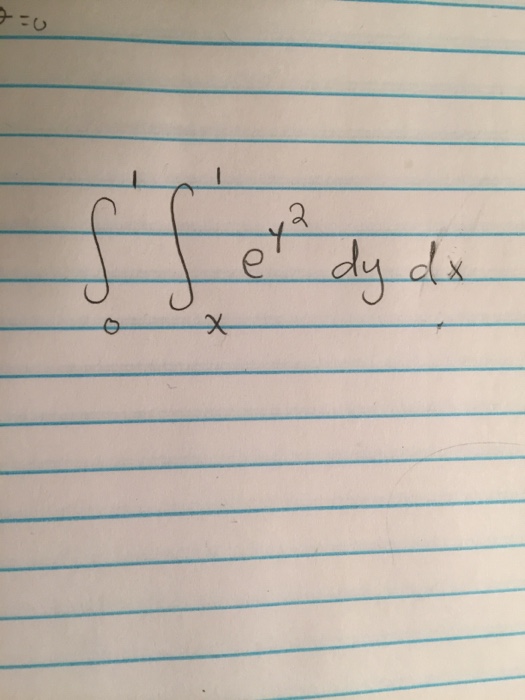 =0
∫₀¹ ∫ₓ¹ e^{y²} dy dx